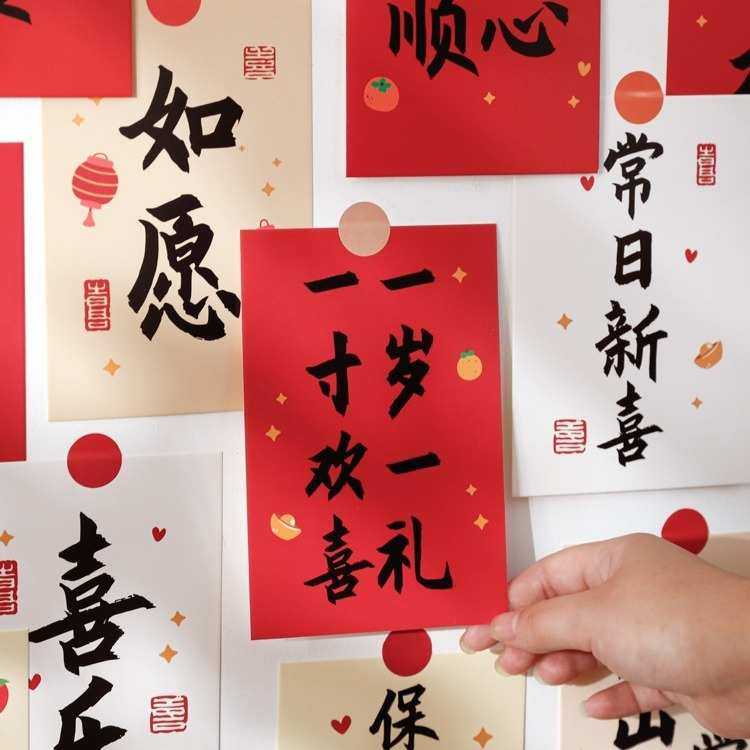 顺心
如愿
常日新喜
一岁一礼
一寸欢喜
喜乐
保